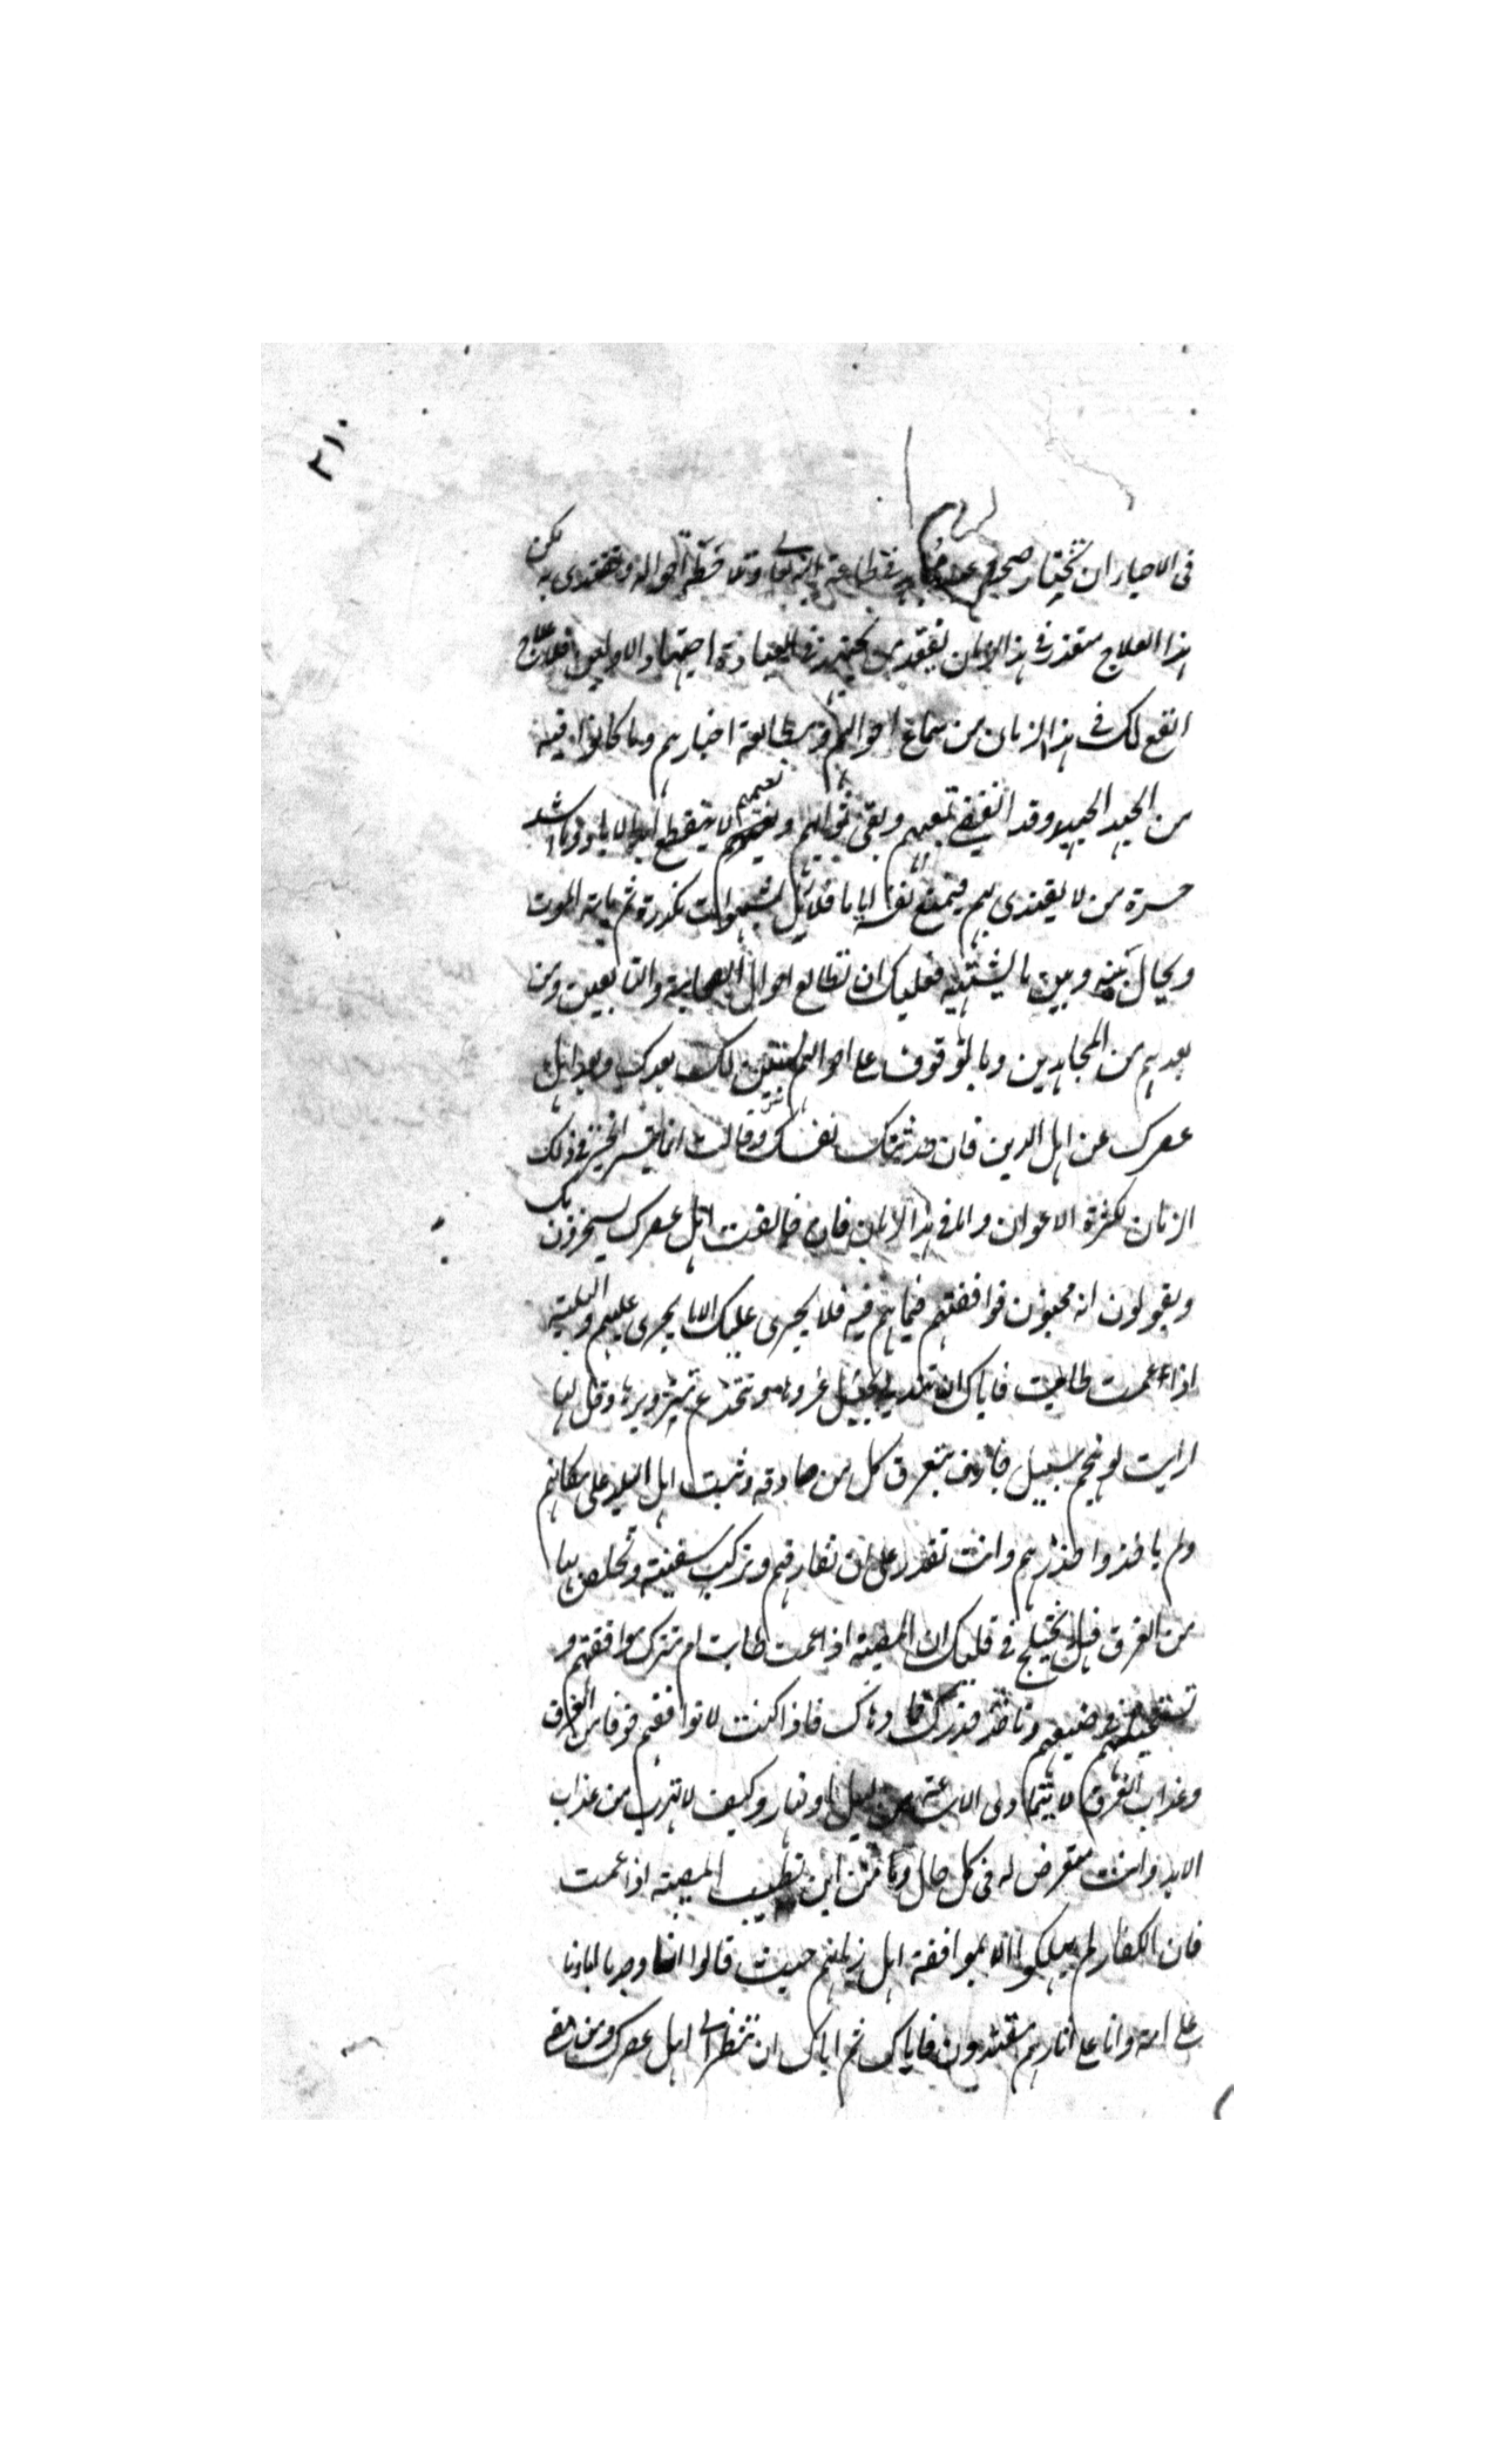 ٢١٠
في الاحيار ان تختار صحبة عبد مجاهد في طاعة الله تعالى وتلاحظ احواله وتقتدي به لكن
هذا العلاج متعذر في هذا الزمان لفقد من يجتهد في العبادة اجتهاد الاولين فلا علاج
انفع لك في هذا الزمان من سماع احوالهم ومطالعة اخبارهم وما كانوا فيه
من الجهد الجهيد وقد انقضى تعبهم وبقي ثوابهم ونعيمهم لا ينقطع ابد الاباد وما اشد
حسرة من لا يقتدي بهم فيمتع نفسه اياما قلائل بشهوات مكدرة ثم ياتيه الموت
ويحال بينه وبين ما يشتهيه فعليك ان تطالع احوال الصحابة والتابعين ومن
بعدهم من المجاهدين وبالوقوف على احوالهم يستبين لك بعدك وبعد اهل
عصرك عن اهل الدين فان حدثتك نفسك وقالت انما تيسر الخير في ذلك
الزمان لكثرة الاعوان واما في هذا الزمان فان خالفت اهل عصرك يسخرون بك
ويقولون انه مجنون فوافقهم فيما هم فيه فلا يجري عليك الا ما يجري عليهم والبلية
اذا عمت طابت فاياك ان تتدلى بحبل غرورها وتنخدع بتزويرها وقل لها
ارايت لو هجم سيل جارف يغرق كل من صادفه وثبت اهل البلد على مكانهم
ولم ياخذوا حذرهم وانت تقدر على ان تفارقهم وتركب سفينة وتخلص بها
من الغرق فهل يختلج في قلبك ان المصيبة اذا عمت طابت ام تترك موافقتهم و
تستجهلهم في صنيعهم وتاخذ حذرك مما دهاك فاذا كنت لا توافقهم خوفا من الغرق
وعذاب الغرق لا يتمادى الا ساعة من ليل او نهار وكيف لا تهرب من عذاب
الابد وانت متعرض له في كل حال ومن اين تطيب المصيبة اذا عمت
فان الكفار لم يهلكوا الا بموافقة اهل زمانهم حيث قالوا انا وجدنا اباءنا
على امة وانا على اثارهم مقتدون فاياك ثم اياك ان تنظر الى اهل عصرك ومن